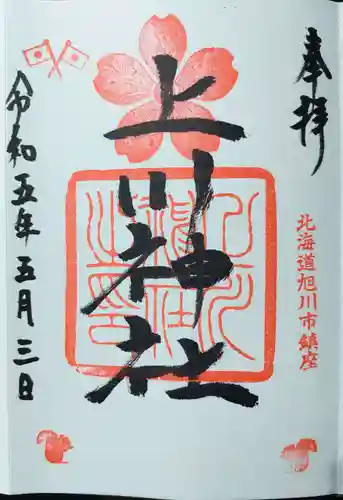 奉拝
北海道旭川市鎮座
上川神社
令和五年五月三日